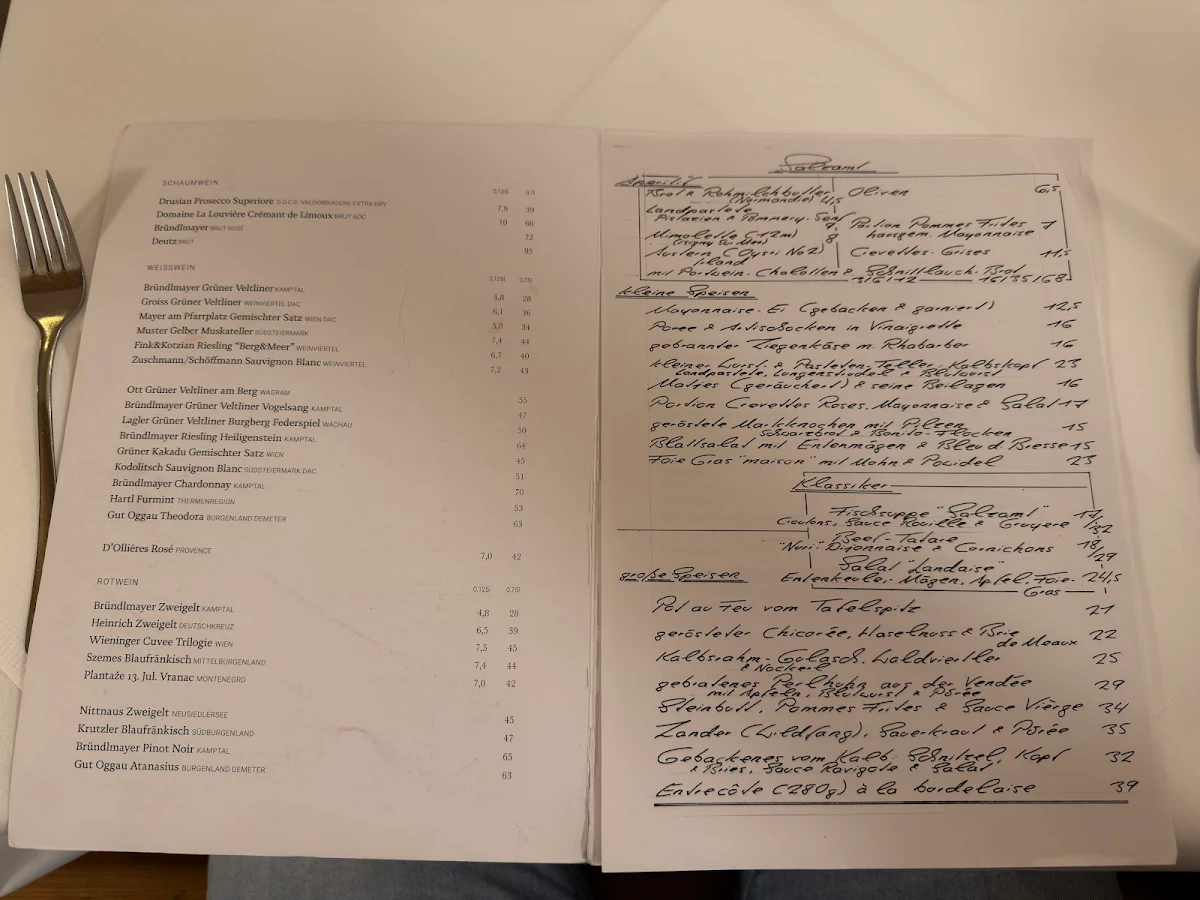 SCHAUMWEIN
0,125l 0,7l
Drusian Prosecco Superiore D.O.C.G. VALDOBBIADENE EXTRA DRY 7,9 39
Domaine La Louvière Crémant de Limoux BRUT AOC 10 60
Bründlmayer BRUT ROSÉ 72
Deutz BRUT 95
WEISSWEIN
0,125l 0,75l
Bründlmayer Grüner Veltliner KAMPTAL 4,8 28
Groiss Grüner Veltliner WEINVIERTEL DAC 6,1 36
Mayer am Pfarrplatz Gemischter Satz WIEN DAC 5,8 34
Muster Gelber Muskateller SÜDSTEIERMARK 7,4 44
Fink&Kotzian Riesling "Berg&Meer" WEINVIERTEL 6,7 40
Zuschmann/Schöffmann Sauvignon Blanc WEINVIERTEL 7,2 43
Ott Grüner Veltliner am Berg WAGRAM 55
Bründlmayer Grüner Veltliner Vogelsang KAMPTAL 47
Lagler Grüner Veltliner Burgberg Federspiel WACHAU 50
Bründlmayer Riesling Heiligenstein KAMPTAL 64
Grüner Kakadu Gemischter Satz WIEN 45
Kodolitsch Sauvignon Blanc SÜDSTEIERMARK DAC 51
Bründlmayer Chardonnay KAMPTAL 70
Hartl Furmint THERMENREGION 53
Gut Oggau Theodora BURGENLAND DEMETER 63
D'Ollières Rosé PROVENCE 7,0 42
ROTWEIN
0,125l 0,75l
Bründlmayer Zweigelt KAMPTAL 4,8 28
Heinrich Zweigelt DEUTSCHKREUZ 6,5 39
Wieninger Cuvee Trilogie WIEN 7,5 45
Szemes Blaufränkisch MITTELBURGENLAND 7,4 44
Plantaže 13. Jul. Vranac MONTENEGRO 7,0 42
Nittnaus Zweigelt NEUSIEDLERSEE 45
Krutzler Blaufränkisch SÜDBURGENLAND 47
Bründlmayer Pinot Noir KAMPTAL 65
Gut Oggau Atanasius BURGENLAND DEMETER 63
Salzamt
Aperitif
Brot & Rohmilchbutter
(Normandie) 4,5
Oliven 6,5
Landpastete
Pistazien & Pommery-Senf 9
Portion Pommes Frites 7
hausgem. Mayonnaise
Mimolette (12m) 8
(Isigny Sur Mer)
Austern (Oysri No2)
Irland
Crevettes Grises 11,5
mit Portwein-Chalotten & Schnittlauch-Brot
3/6/12 16/35/68
kleine Speisen
Mayonnaise-Ei (gebacken & garniert) 12,5
Poree & Artischocken in Vinaigrette 16
gebrannter Ziegenkäse m. Rhabarber 16
kleiner Wurst- & Pasteten-Teller, Kalbskopf 23
Landpastete, Lungenstrudel & Blutwurst
Matjes (geräuchert) & seine Beilagen 16
Portion Crevettes Roses, Mayonnaise & Salat 17
geröstete Markknochen mit Pilzen 15
Schwarzbrot & Bonito-Flocken
Blattsalat mit Entenmägen & Bleu d. Bresse 15
Foie Gras "maison" mit Mohn & Powidel 23
Klassiker
Fischsuppe "Salzamt" 17/32
Croutons, Sauce Rouille & Gruyere
Beef-Tatare 18/29
"Nuri": Dijonnaise & Cornichons
Salat "Landaise"
Entenkeule,- Mägen, Apfel, Foie- 24,5
Gras
große Speisen
Pot au Feu vom Tafelspitz 21
gerösteter Chicorée, Haselnuss & Brie 22
de Meaux
Kalbsrahm-Gulasch, Waldviertler 25
& Nockerl
gebratenes Perlhuhn aus der Vendée 29
mit Äpfeln, Blutwurst & Püree
Steinbutt, Pommes Frites & Sauce Vierge 34
Zander (Wildfang), Sauerkraut & Püree 35
Gebackenes vom Kalb: Schnitzel, Kopf 32
& Bries, Sauce Ravigote & Salat
Entrecôte (280g) à la bordelaise 39